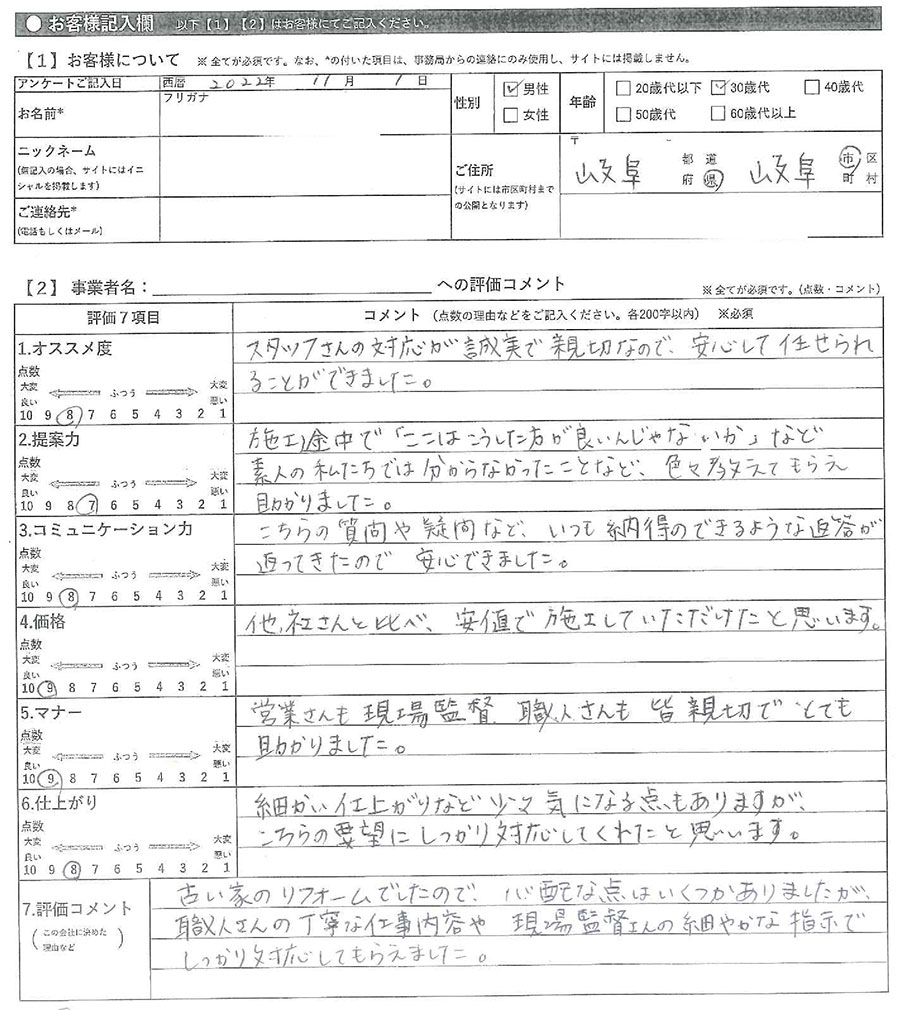 ● お客様記入欄 以下【1】【2】はお客様にてご記入ください。
【1】お客様について ※ 全てが必須です。なお、*の付いた項目は、事務局からの連絡にのみ使用し、サイトには掲載しません。
アンケートご記入日 西暦 2022年 11月 1日
お名前* フリガナ
性別 ☑男性 □女性
年齢 □20歳代以下 ☑30歳代 □40歳代
□50歳代 □60歳代以上
ニックネーム
(無記入の場合、サイトにはイニ
シャルを掲載します)
ご連絡先*
(電話もしくはメール)
ご住所
(サイトには市区町村まで
の公開となります)
〒 -
岐阜 都道府県 岐阜 市区町村
【2】事業者名: への評価コメント ※ 全てが必須です。(点数・コメント)
評価7項目 コメント (点数の理由などをご記入ください。各200字以内) ※必須
1.オススメ度
点数
大変良い ふつう 大変悪い
10 9 8 7 6 5 4 3 2 1
スタッフさんの対応が誠実で親切なので、安心して任せられ
ることができました。
2.提案力
点数
大変良い ふつう 大変悪い
10 9 8 7 6 5 4 3 2 1
施工途中で「ここはこうした方が良いんじゃないか」など
素人の私たちでは分からなかったことなど、色々教えてもらえ
助かりました。
3.コミュニケーション力
点数
大変良い ふつう 大変悪い
10 9 8 7 6 5 4 3 2 1
こちらの質問や疑問など、いつも納得のできるような返答が
返ってきたので 安心できました。
4.価格
点数
大変良い ふつう 大変悪い
10 9 8 7 6 5 4 3 2 1
他社さんと比べ、安値で施工していただけたと思います。
5.マナー
点数
大変良い ふつう 大変悪い
10 9 8 7 6 5 4 3 2 1
営業さんも現場監督 職人さんも 皆親切でとても
助かりました。
6.仕上がり
点数
大変良い ふつう 大変悪い
10 9 8 7 6 5 4 3 2 1
細かい仕上がりなど少々気になる点もありますが、
こちらの要望にしっかり対応してくれたと思います。
7.評価コメント
(この会社に決めた
理由など)
古い家のリフォームでしたので、心配な点はいくつかありましたが、
職人さんの丁寧な仕事内容や 現場監督さんの細やかな指示で
しっかり対応してもらえました。